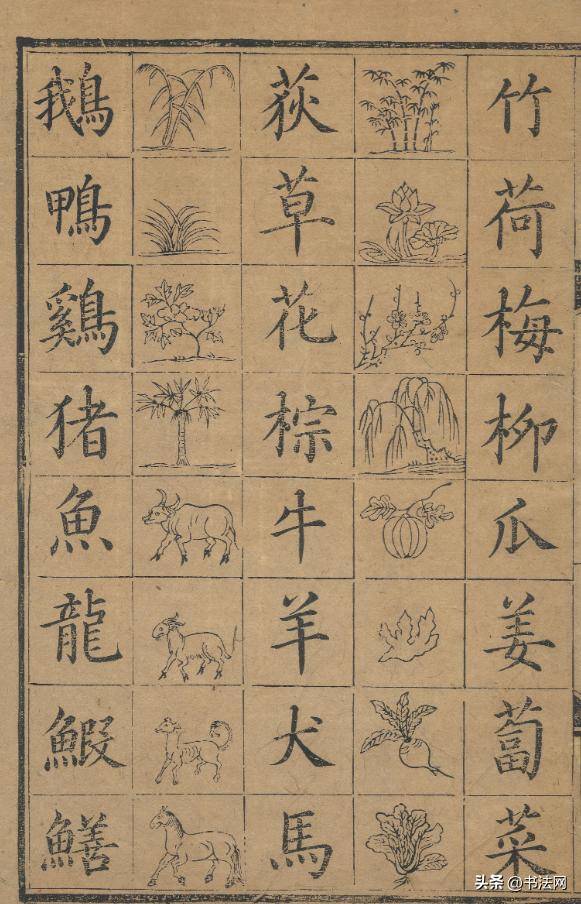 竹荷梅柳瓜姜蔔菜
荻草花棕牛羊犬馬
鵝鴨鷄猪魚龍鰕鱔
头条 @书法网